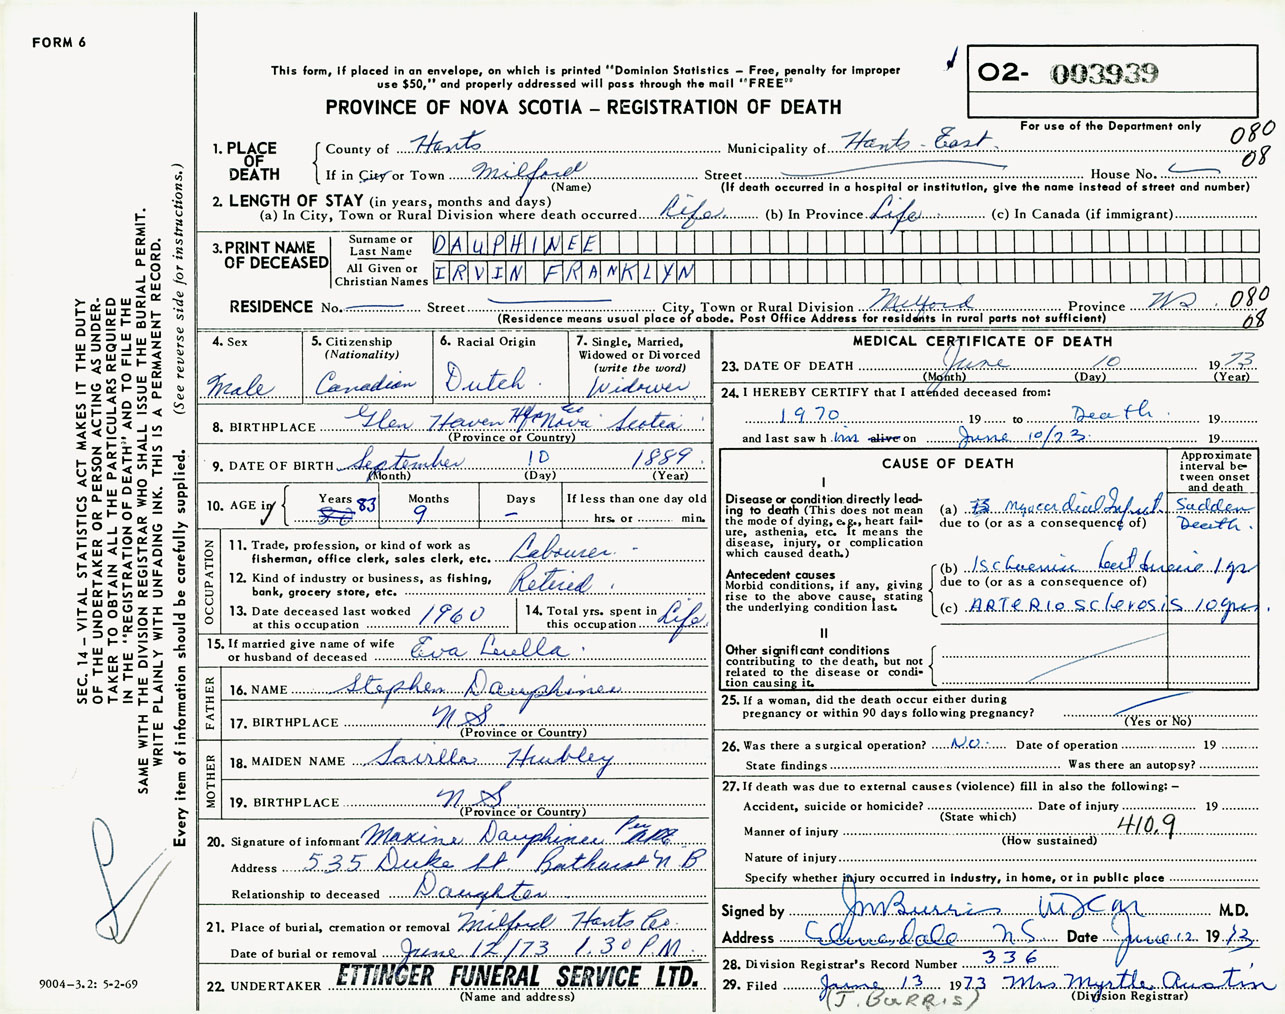 FORM 6
This form, if placed in an envelope, on which is printed "Dominion Statistics – Free, penalty for improper
use $50," and properly addressed will pass through the mail "FREE"
O2- 003939
PROVINCE OF NOVA SCOTIA – REGISTRATION OF DEATH
For use of the Department only
080
08
1. PLACE OF DEATH
County of Hants Municipality of Hants - East
If in City or Town Milford Street House No.
(Name) (If death occurred in a hospital or institution, give the name instead of street and number)
2. LENGTH OF STAY (in years, months and days)
(a) In City, Town or Rural Division where death occurred Life (b) In Province Life (c) In Canada (if immigrant)
3. PRINT NAME OF DECEASED
Surname or Last Name DAUPHINEE
All Given or Christian Names IRVIN FRANKLYN
RESIDENCE No. Street City, Town or Rural Division Milford Province NS 080
(Residence means usual place of abode. Post Office Address for residents in rural parts not sufficient) 08
4. Sex
Male
5. Citizenship
(Nationality)
Canadian
6. Racial Origin
Dutch
7. Single, Married,
Widowed or Divorced
(write the word)
Widower
8. BIRTHPLACE Glen Haven Hfx Co Nova Scotia
(Province or Country)
9. DATE OF BIRTH September 10 1889
(Month) (Day) (Year)
10. AGE in
Years Months Days If less than one day old
83 9 – hrs. or min.
OCCUPATION
11. Trade, profession, or kind of work as
fisherman, office clerk, sales clerk, etc. Labourer
12. Kind of industry or business, as fishing,
bank, grocery store, etc. Retired
13. Date deceased last worked
at this occupation 1960
14. Total yrs. spent in
this occupation Life
15. If married give name of wife
or husband of deceased Eva Luella
FATHER
16. NAME Stephen Dauphinee
17. BIRTHPLACE N S
(Province or Country)
MOTHER
18. MAIDEN NAME Savilla Hubley
19. BIRTHPLACE N S
(Province or Country)
20. Signature of informant Maxine Dauphinee Per
Address 535 Duke St Bathurst N B
Relationship to deceased Daughter
21. Place of burial, cremation or removal Milford Hants Co.
Date of burial or removal June 12/73 1.30 P.M.
22. UNDERTAKER ETTINGER FUNERAL SERVICE LTD.
(Name and address)
MEDICAL CERTIFICATE OF DEATH
23. DATE OF DEATH June 10 1973
(Month) (Day) (Year)
24. I HEREBY CERTIFY that I attended deceased from:
1970 19 to Death 19
and last saw him alive on June 10/73 19
CAUSE OF DEATH
Approximate
interval be-
tween onset
and death
I
Disease or condition directly lead-
ing to death (This does not mean
the mode of dying, e.g., heart fail-
ure, asthenia, etc. It means the
disease, injury, or complication
which caused death.)
(a) myocardial Infarct Sudden
due to (or as a consequence of) Death.
Antecedent causes
Morbid conditions, if any, giving
rise to the above cause, stating
the underlying condition last.
(b) Ischaemic 1 yr
due to (or as a consequence of)
(c) ARTERIOSCLEROSIS 10 yrs.
II
Other significant conditions
contributing to the death, but not
related to the disease or condi-
tion causing it.
25. If a woman, did the death occur either during
pregnancy or within 90 days following pregnancy?
(Yes or No)
26. Was there a surgical operation? No. Date of operation 19
State findings Was there an autopsy?
27. If death was due to external causes (violence) fill in also the following: –
Accident, suicide or homicide? Date of injury 19
(State which)
410.9
Manner of injury
(How sustained)
Nature of injury
Specify whether injury occurred in industry, in home, or in public place
Signed by JM Burris M.D.
Address Elmsdale N S Date June 12 1973
28. Division Registrar's Record Number 336
29. Filed June 13 1973 Mrs Myrtle Austin
(J. BURRIS) (Division Registrar)
SEC. 14 – VITAL STATISTICS ACT MAKES IT THE DUTY
OF THE UNDERTAKER OR PERSON ACTING AS UNDER-
TAKER TO OBTAIN ALL THE PARTICULARS REQUIRED
IN THE "REGISTRATION OF DEATH" AND TO FILE THE
SAME WITH THE DIVISION REGISTRAR WHO SHALL ISSUE THE BURIAL PERMIT.
WRITE PLAINLY WITH UNFADING INK. THIS IS A PERMANENT RECORD.
Every item of information should be carefully supplied. (See reverse side for instructions.)
9004-3.2: 5-2-69